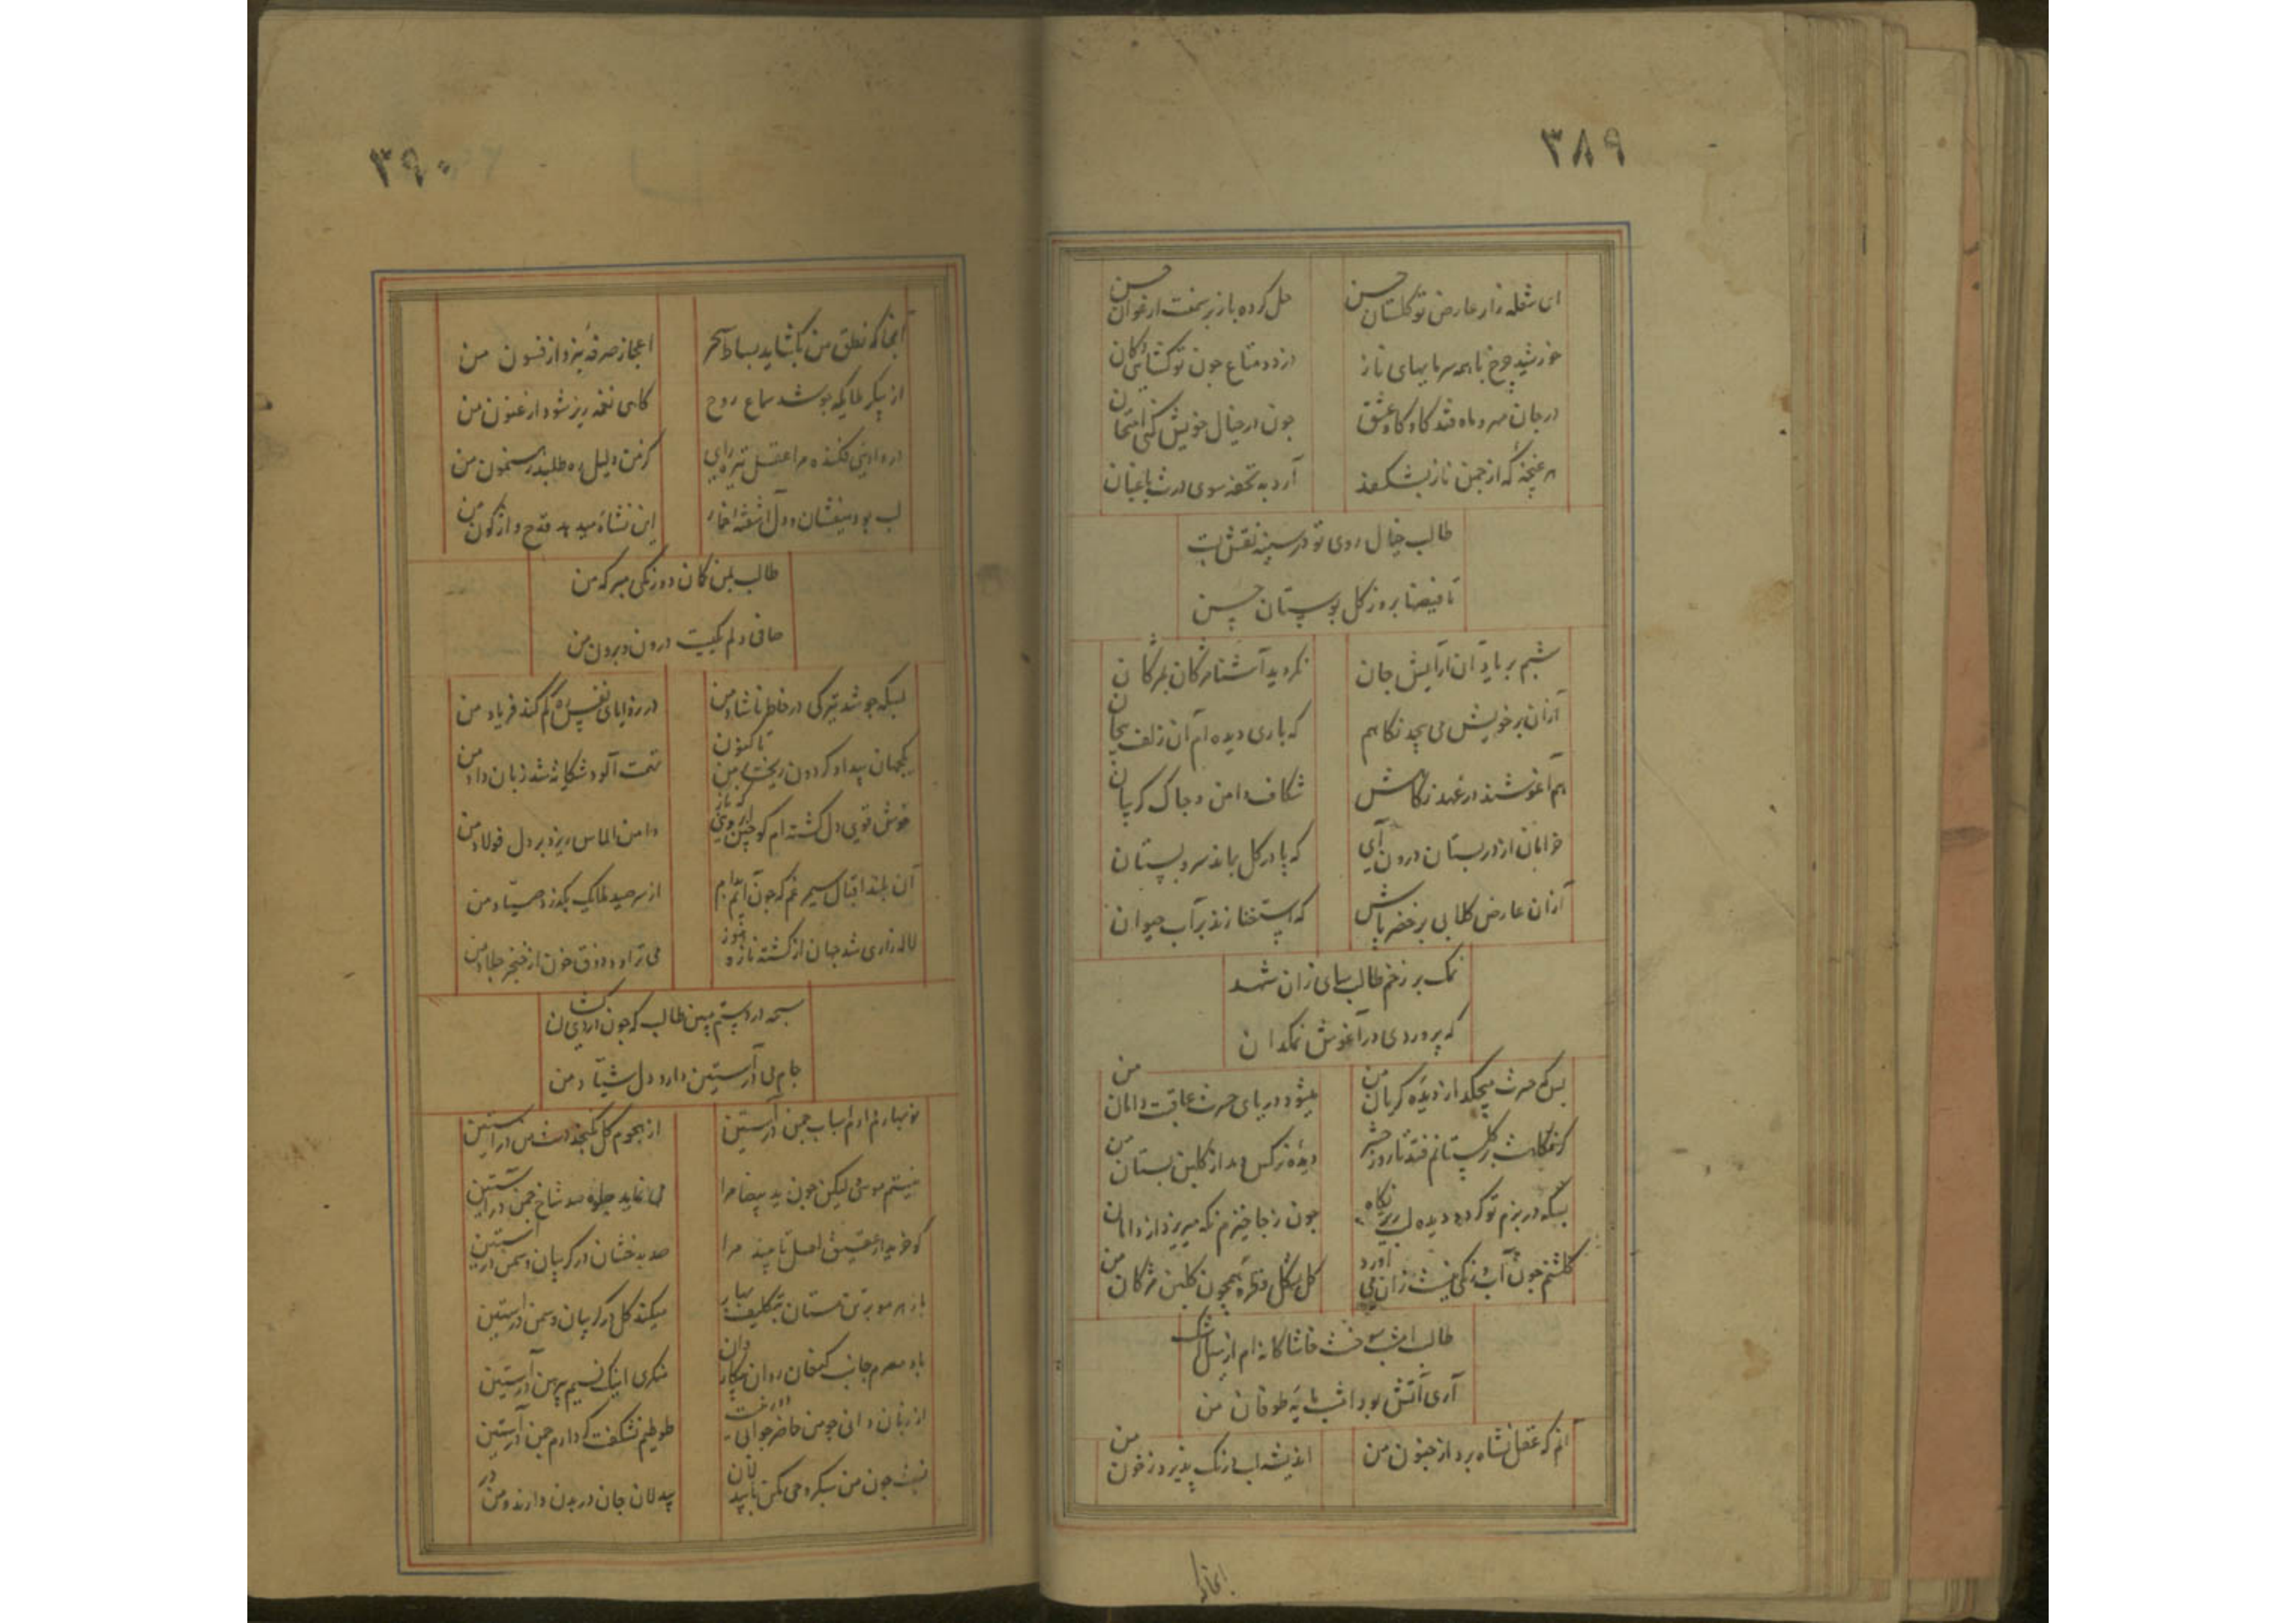 ۳۸۹
ای شعله زار عارض تو گلستان حسن
حل کرده باز بر سمنت ارغوان حسن
خورشید چرخ با همه سرمایهای ناز
دزدد متاع چون تو گشایی دکان
در جان مهر و ماه فتد کاوکاو عشق
چون در خیال خویش کنی امتحان
هر غنچهٔ که از چمن ناز بشکفد
آرد به تحفه سوی درت باغبان
طالب خیال روی تو در سینه نقش بست
تا فیضها برد ز گل بوستان حسن
شبم بر یاد آن آرایش جان
نگردید آشنا مژگان بمژگان
ازان بر خویش می پیچد نگاهم
که باری دیده ام آن زلف پیچان
هم آغوشند در عهد نگاهش
شکاف دامن و چاک گریبان
خرامان از در بستان درون آی
که پا در گل بماند سرو بستان
ازان عارض گلابی بر خضر پاش
که استغنا زند بر آب حیوان
نمک بر زخم طالب سای زان شهد
که پروردی در آغوش نمکدان
بس که حسرت میچکد از دیدهٔ گریان من
میشود دریای حسرت عاقبت دامان من
گر نگاهت بر گلستانم فتد تا روز حشر
دیدهٔ نرگس دمد از گلبن بستان من
بسکه در بزم تو گردد دیده لبریز نگاه
چون ز جا خیزم نگه میریزد از دامان
گلشنم چون آب و رنگی نیست زان می آورد
گل بشکل قطره همچون گلبن مژگان من
طالب امشب سوخت خاشاکانه ام از سیل اشک
آری آتش بود امشب مایهٔ طوفان من
آنم که عقل نشاه برد از جنون من
اندیشه آب و رنگ پذیرد ز خون من
۳۹۰
آنجا که نطق من بگشاید بساط سحر
اعجاز صرفهٔ نبرد از فسون من
از پیکر ملایکه جوشد سماع روح
گاهی نغمه ریز شود ارغنون من
در وادیی فکنده مرا عقل تیره رای
کز من دلیل ره طلبد رهنمون من
این نشاه میدهد قدح واژگون من
طالب بمن گمان دورنگی مبر که من
صافی دلم یکیست درون و برون من
بسکه جوشد تیرگی در خاطر ناشاد من
در ره ایمای نفس ره گم کند فریاد من
یکجهان بیداد گردون ریخت بر من تا کنون
تهمت آلود شکایت شد زبان داد من
خوش قوی دل گشته ام کو چین ابروی که باز
دامن الماس ریزد بر دل فولاد من
آن بلند اقبال سیمرغم که چون آیم بدام
از سر صید ملایک بگذرد صیاد من
لاله زاری شد جهان از کشته تازه هنوز
می تراود ذوق خون از خنجر جلاد من
سبحه در دستم مبین طالب که چون اردی کشان
جام می در آستین دارد دل شیاد من
نوبهارم دارم اسباب چمن در آستین
از هجوم گل نگنجد دست من در آستین
نیستم موسی لیکن چون ید بیضا مرا
می نماید جلوه صد شاخ چمن در آستین
کو خریدار عقیق اصل تا بیند مرا
صد بدخشان در گریبان و یمن در آستین
باز هر مو بر تن مستان بتکلیف بهار
میکند گل در گریبان و سمن در آستین
باد مصرم جانب کنعان روان
منکری اینک نسیم پیرهن در آستین
از زبان دانی چو من حاضر جوابی دور نیست
طوطیم نشگفت گر دارم چمن در آستین
نیست چون من سبکروحی
بیدلان جان در بدن دارند و من در